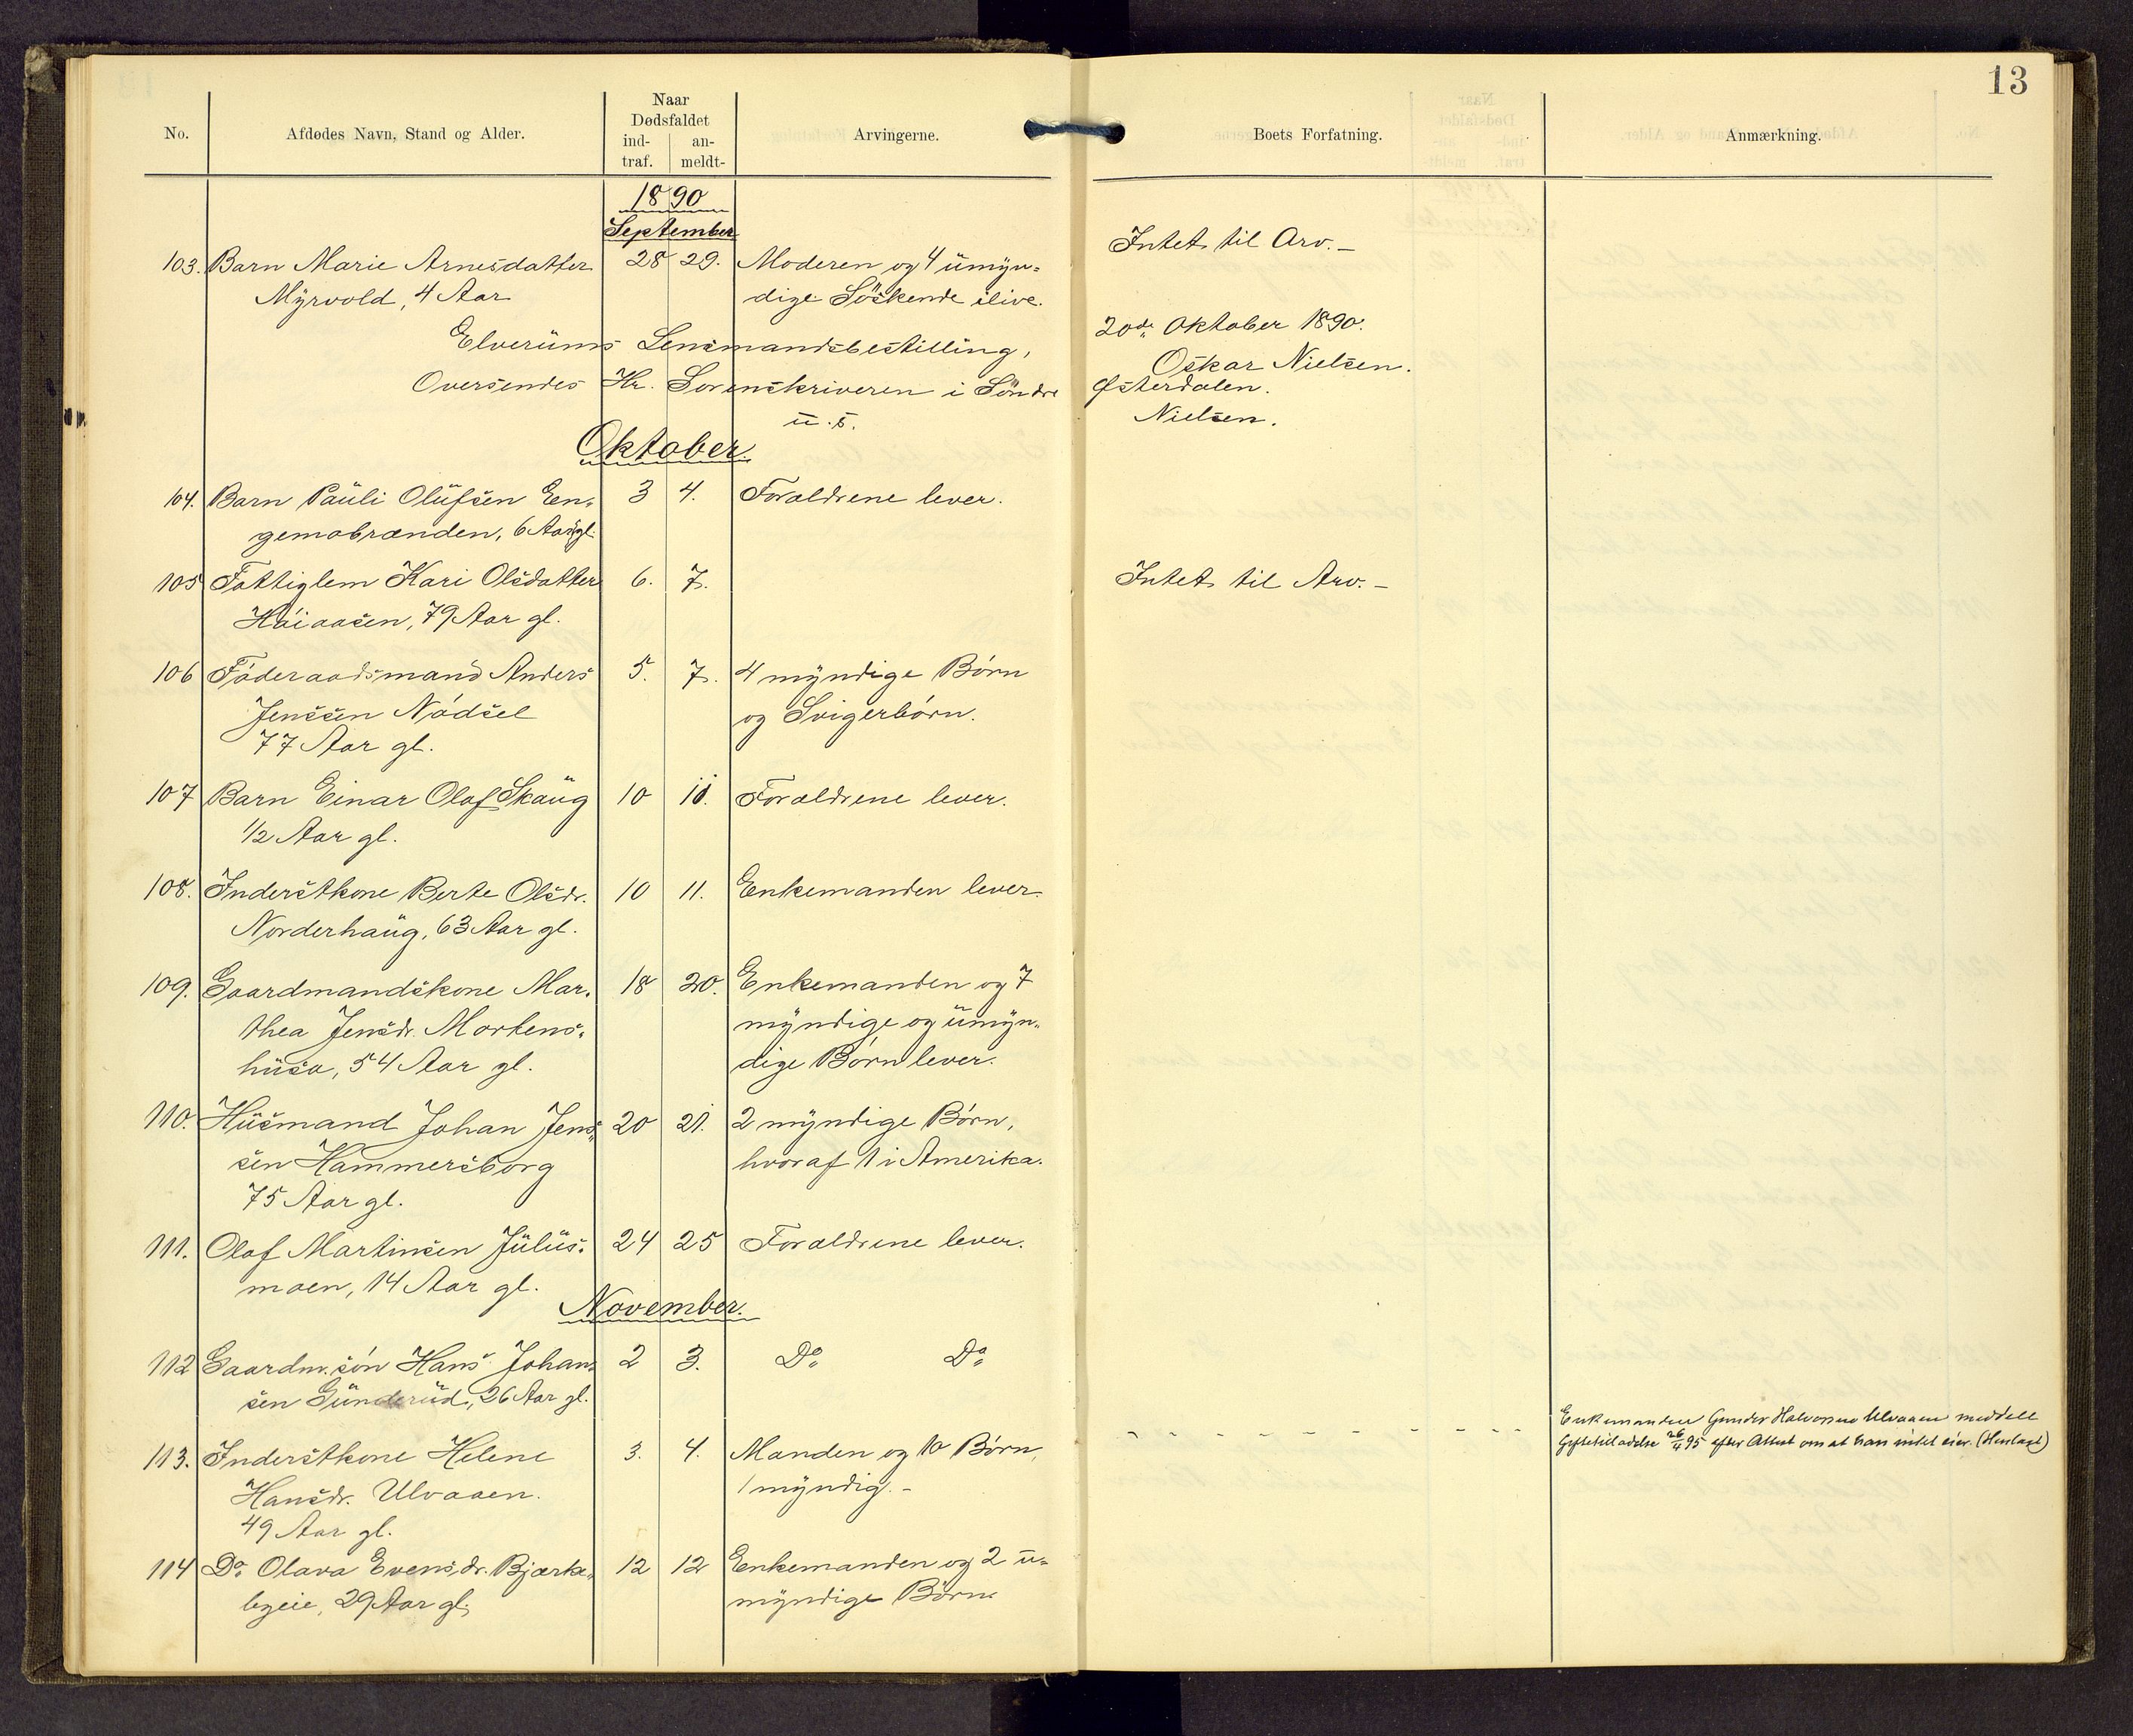 13
No. Afdødes Navn, Stand og Alder. Naar Dødsfaldet ind-traf. an-meldt- Arvingerne. Boets Forfatning. Anmærkning.
1890
September
103. Barn Marie Arnesdatter 28 29. Moderen og 4 umyn- Intet til Arv. –
Myrvold, 4 Aar dige Söskende ilive.
Elverums Lensmandsbestilling, 20de Oktober 1890.
Oskar Nielsen.
Oversendes Hr. Sorenskriveren i Söndre Østerdalen.
u. s. Nielsen.
Oktober.
104. Barn Pauli Olufsen En- 3 4. Forældrene lever.
gemobrænden, 6 Aar gl.
105 Fattiglem Kari Olsdatter 6. 7. Intet til Arv. –
Höiaasen, 79 Aar gl.
106 Föderaadsmand Anders 5. 7. 4 myndige Börn
Jenssen Nödsel og Svigerbörn.
77 Aar gl.
107 Barn Einar Olaf Skaug 10 11. Forældrene lever.
1/2 Aar gl.
108. Inderstkone Berte Olsdr. 10 11. Enkemanden lever.
Norderhaug, 63 Aar gl.
109. Gaardmandskone Mar- 18 20. Enkemanden og 7
thea Jensdr. Mortens- myndige og umyn-
husa, 54 Aar gl. dige Börn lever.
110. Husmand Johan Jens- 20 21. 2 myndige Börn,
sen Hammersborg hvoraf 1 i Amerika.
75 Aar gl.
111. Olaf Martinsen Julus- 24 25 Forældrene lever.
moen, 14 Aar gl.
November.
112 Gaardm.sön Hans Johan- 2 3. Do Do
sen Gunderud, 26 Aar gl.
Enkemanden Gunder Halvorsen Ulvaaen meddelt
113. Inderstkone Helene 3. 4. Manden og 10 Börn, - - - - - - - - - Giftetilladelse 26/4 95 efter Attest om at han intet eier. (Henlagt)
Hansdr. Ulvaaen. 1 myndig. –
49 Aar gl.
114 Do Olava Evensdr. Bjærke- 12 12 Enkemanden og 2 u-
bgeie, 29 Aar gl. myndige Börn